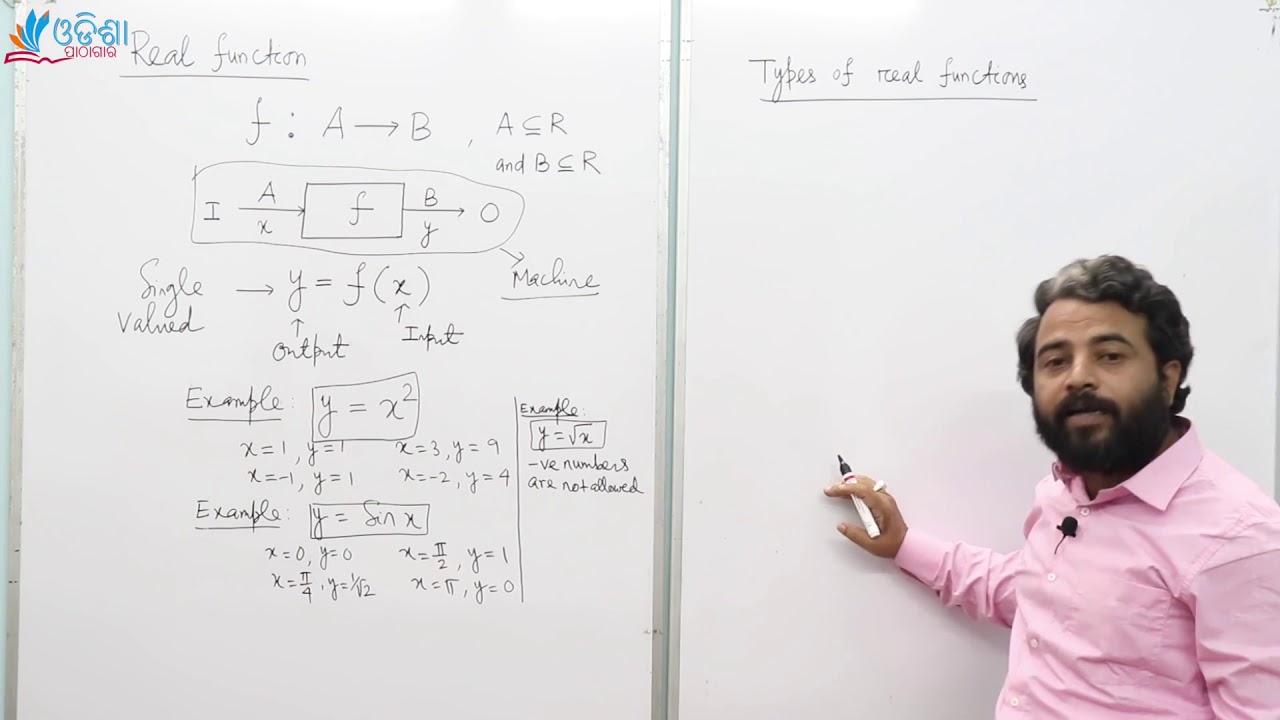 ଓଡିଶା
ପାଠାଗାର
Real function
f : A → B , A ⊆ R
and B ⊆ R
I A x f B y O
Machine
Single Valued → y = f(x)
↑ Output ↑ Input
Example: y = x²
x = 1, y = 1 x = 3, y = 9
x = -1, y = 1 x = -2, y = 4
Example: y = Sin x
x = 0, y = 0 x = π/2, y = 1
x = π/4, y = 1/√2 x = π, y = 0
Example:
y = √x
-ve numbers
are not allowed
Types of real functions